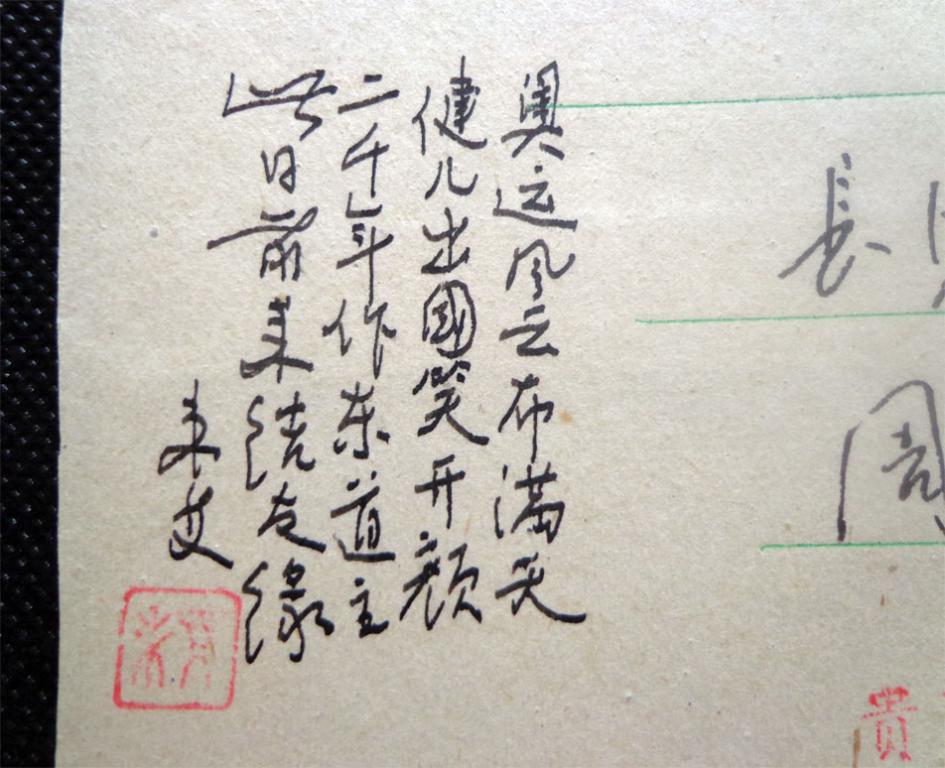 奥运风云布满天
健儿出國笑开颜
二千年作东道主
此日前来结友缘
長
周
貴